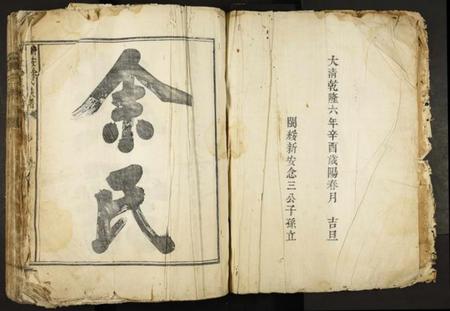 余氏
大清乾隆六年辛酉歲陽春月 吉旦
閩綏新安念三公子孫立